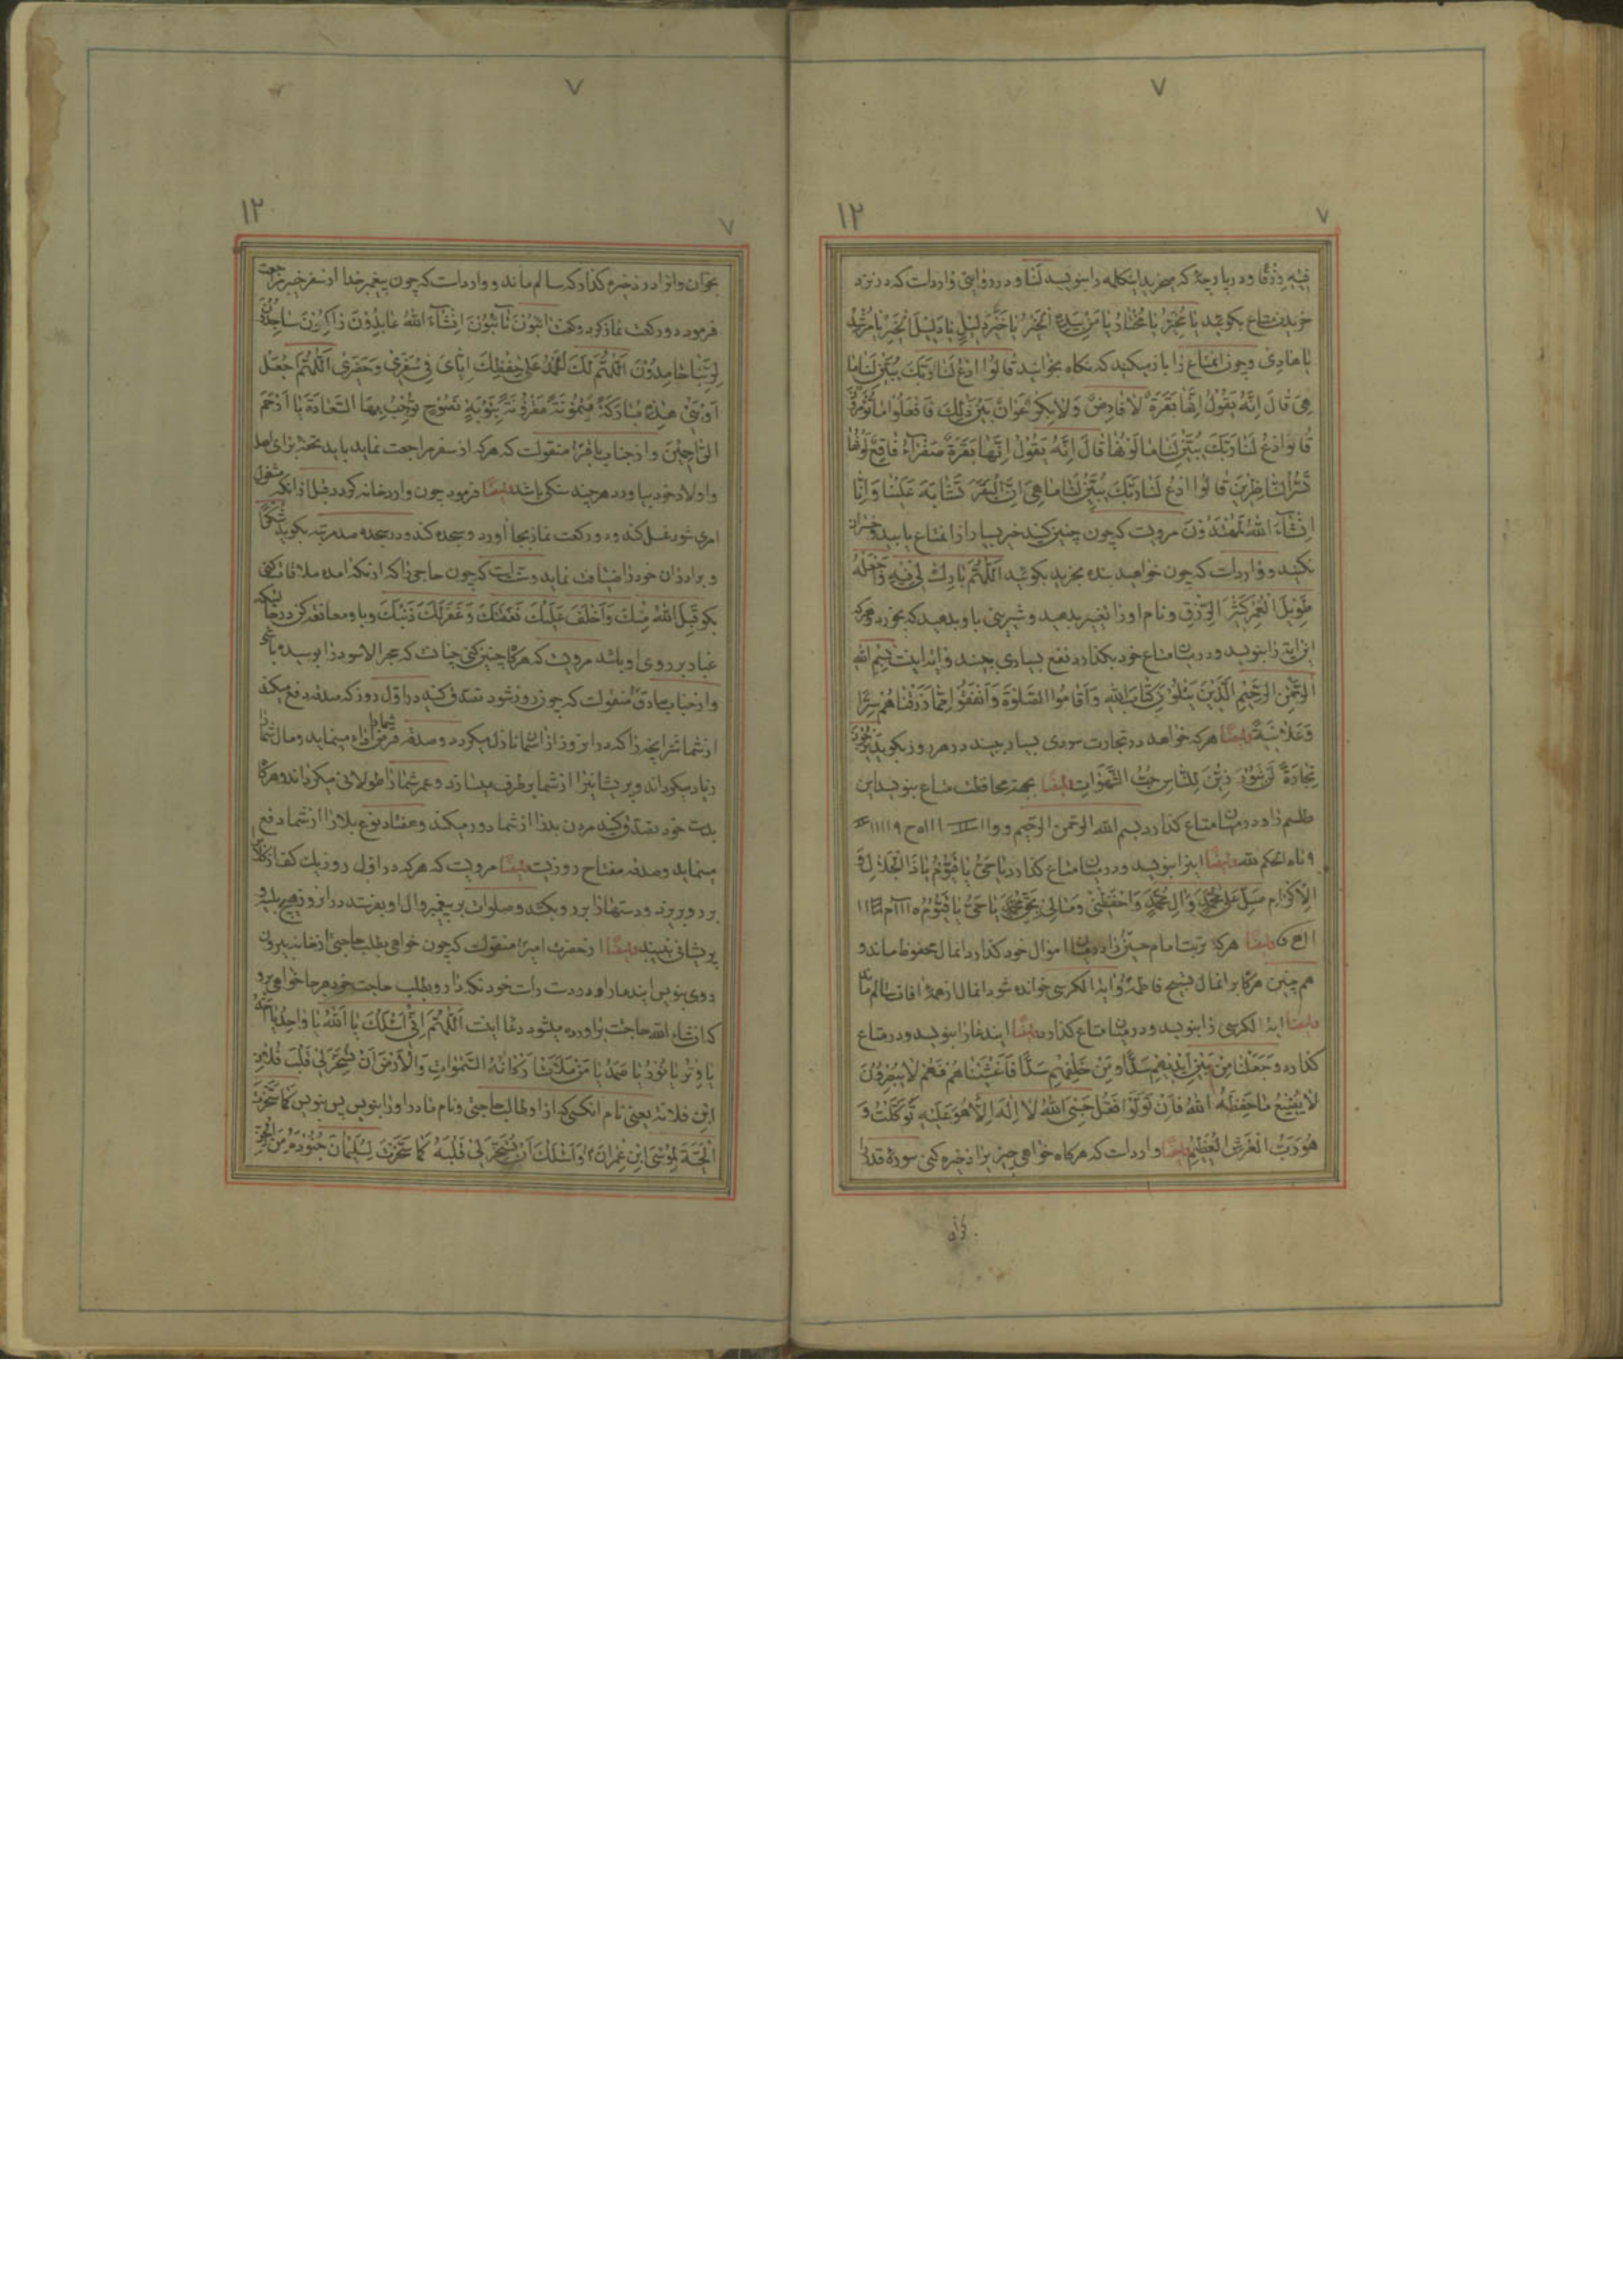 ٧
١٢
٧
فیه رزقا و در پارچهٔ که میخرید اینکلمه را بنویسد لنا و در روایتی وارداست که در نزد
خریدن متاع بکوئید یا مخیر یا مختار یا من بیده الخیر یا خیر دلیل یا دلیل الخیر یا مرشد
یا هادی و چون متاع را باز میکنید که نکاه بخوانید قالوا ادع لنا ربک یبین لنا ما
هی قال انه یقول انها بقرة لا فارض ولا بکر عوان بین ذلک فافعلوا ما تؤمرون
قالوا ادع لنا ربک یبین لنا ما لونها قال انه یقول انها بقرة صفراء فاقع لونها
تسر الناظرین قالوا ادع لنا ربک یبین لنا ما هی ان البقر تشابه علینا وانا
انشاء الله لمهتدون مرویست که چون چنین کنید خیر بسیار از انمتاع یابید و خسران
نکنید و وارداست که چون خواهید بنده بخرید بکوئید اللهم بارک لی فیه واجعله
طویل العمر کثیر الرزق و نام او را تغییر بدهید و شیرینی باو بدهید که بخورد و هرکه
این ایه را بنویسد و در میان متاع خود بکذارد نفع بسیاری بیند و ایه اینست بسم الله
الرحمن الرحیم الذین یتلون کتاب الله واقاموا الصلوة وانفقوا مما رزقناهم سرا
وعلانیة ایضا هرکه خواهد در تجارت سودی بسیار بیند در هر روز بکوید یرجون
تجارة لن تبور زین للناس حب الشهوات ایضا بجهة محافظت متاع بنویسد این
طلسم را و در میان متاع کذارد بسم الله الرحمن الرحیم
الحکم لله ایضا اینرا بنویسد و در میان متاع کذارد یا حی یا قیوم یا ذا الجلال و
الاکرام صل علی محمد وآل محمد واحفظنی ومالی بحق محمد یا حی یا قیوم
ایضا هرکه تربت امام حسین را در میان اموال خود کذارد انمال محفوظ ماند و
هم چنین هرکاه بر انمال تسبیح فاطمه و ایة الکرسی خوانده شود انمال از همهٔ افات سالم ماند
ایضا ایة الکرسی را بنویسد و در میان متاع کذارد ایضا ایندعا را بنویسد و در متاع
کذارد وجعلنا من بین ایدیهم سدا ومن خلفهم سدا فاغشیناهم فهم لا یبصرون
لا یضیع ما حفظه الله فان تولوا فقل حسبی الله لا اله الا هو علیه توکلت و
هو رب العرش العظیم ایضا وارداست که هرکاه خواهی چیزی را ذخیره کنی سورهٔ قدر را
٧
١٢
٧
بخوان وانرا در ذخیره کذار که سالم ماند و وارداست که چون پیغمبر خدا از سفر خیبر مراجعت
فرمود دو رکعت نماز کرد و کفت ائبون تائبون انشاء الله عابدون راکعون ساجدون
لربنا حامدون اللهم لک الحمد علی حفظک ایای فی سفری وحضری اللهم اجعل
اوبتی هذه مبارکة میمونة مقرونة بتوبة نصوح توجب بها السعادة یا ارحم
الراحمین و از جناب باقر منقولست که هرکه از سفر مراجعت نماید باید تحفه برای اهل
و اولاد خود بیاورد هرچند سنکی باشد ایضا فرمود چون وارد خانه کردد قبل از انکه مشغول
امری شود غسل کند و دو رکعت نماز بجا آورد و سجده کند و در سجده صد مرتبه بکوید شکرا
و برادران خود را ضیافت نماید و که چون حاجی را که از مکه امده ملاقات کنی
بکو قبل الله منک واخلف علیک نفقتک وغفر لک ذنبک و با او معانقه کن در حالیکه
غبار بر روی او باشد مرویست که هرکاه چنین کنی چنان است که حجر الاسود را بوسیده باشی
و از جناب صادق منقولست که چون روز شود تصدق کنید در اول روز که صدقه دفع میکند
از شما شر انچه را که در ان روز از اسمان نازل میکردد و صدقه قرض شما را اداء مینماید و مال شما را
زیاد میکرداند و پریشانیرا از شما برطرف میسازد و عمر شما را طولانی میکرداند و هرکاه
بدست خود تصدق کنید مردن بد را از شما دور میکند و هفتاد نوع بلا را از شما دفع
مینماید و صدقه مفتاح روزیست ایضا مرویست که هرکه در اول روز یک کف از کلاب
بر رو بریزد و دستها را بر رو بکشد و صلوات بر پیغمبر وال او بفرستد در انروز هیچ بلیه و
پریشانی نبیند ایضا از حضرت امیر منقولست که چون خواهی بطلب حاجتی از خانه بیرون
روی بنویس ایندعا را و در دست راست خود نکه دار و بطلب حاجت خود هرجا خواهی برو
که انشاء الله حاجت براورده میشود دعا اینست اللهم انی اسئلک یا الله یا واحد یا احد
یا وتر یا نور یا صمد یا من ملأت ارکانه السموات والارض ان تسخر لی قلب فلان
ابن فلانة یعنی نام انکسی که از او طالب حاجتی و نام مادر او را بنویس پس بنویس کما سخرت
الحیة لموسی ابن عمران واسئلک ان تسخر لی قلبه کما سخرت لسلیمان جنوده من الجن